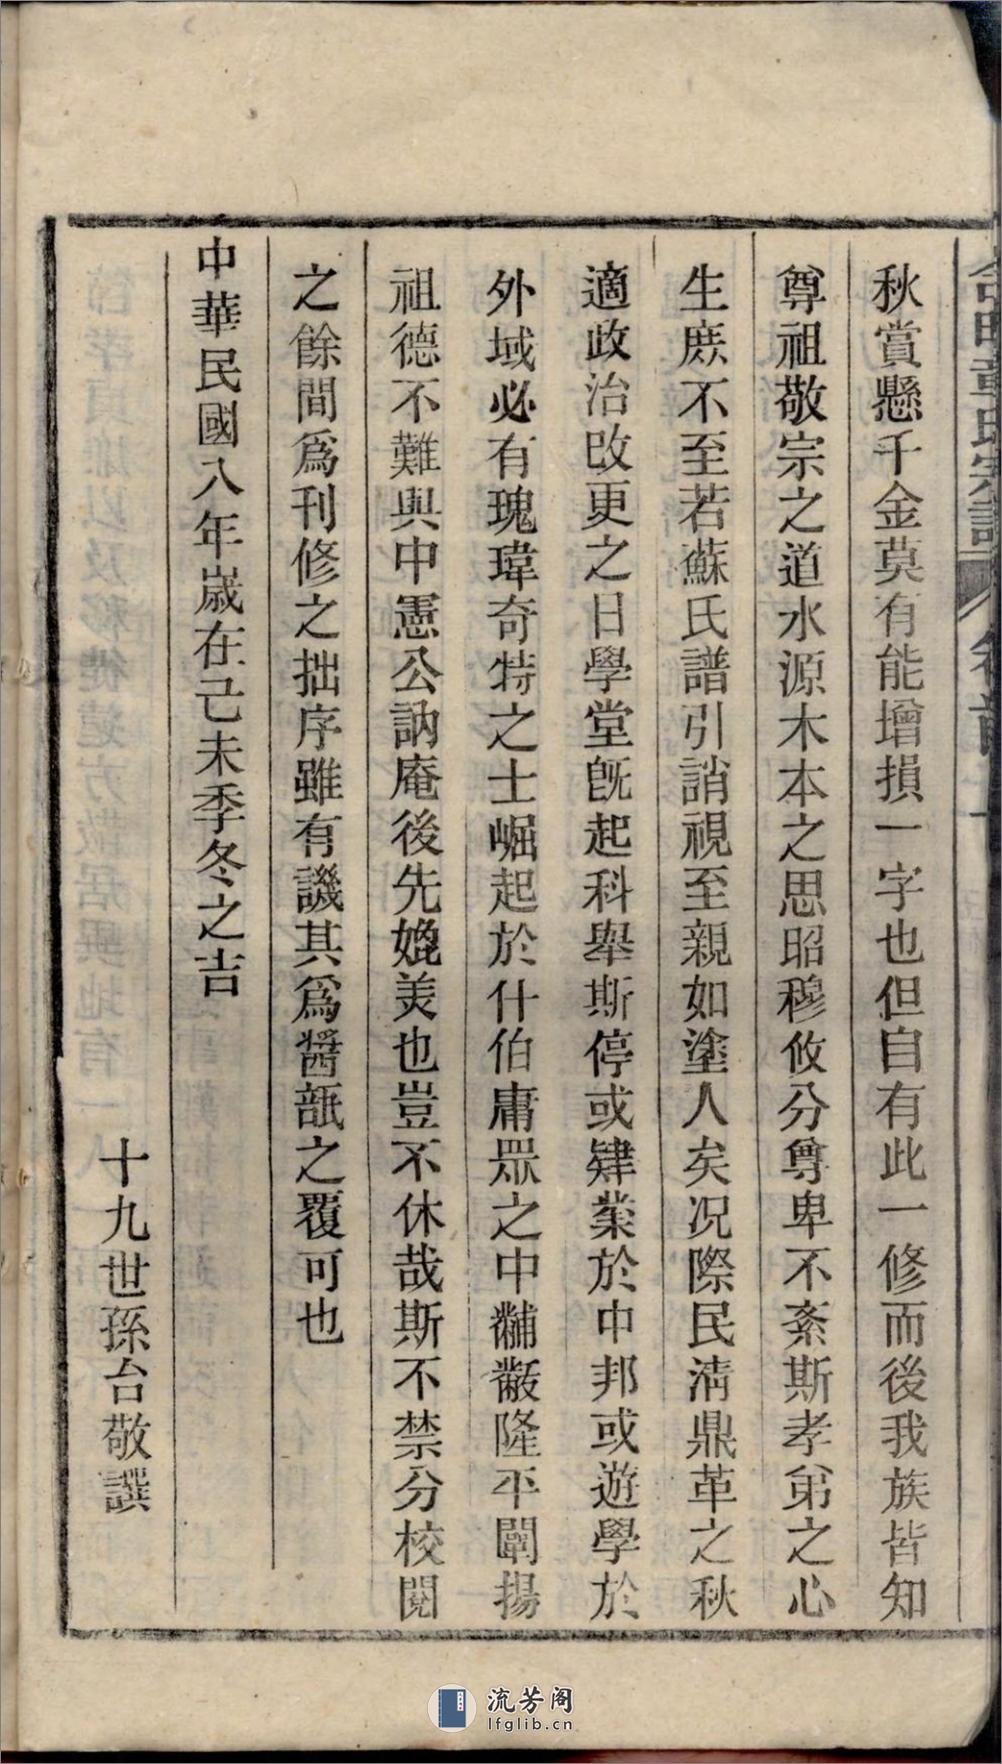 章氏宗譜
秋賞懸千金莫有能增損一字也但自有此一修而後我族皆知
尊祖敬宗之道水源木本之思昭穆攸分尊卑不紊斯孝弟之心
生庶不至若蘇氏譜引誚視至親如塗人矣况際民淸鼎革之秋
適政治改更之日學堂旣起科舉斯停或肄業於中邦或遊學於
外域必有瑰瑋奇特之士崛起於什伯庸眾之中黼黻隆平闡揚
祖德不難與中憲公訥庵後先媲美也豈不休哉斯不禁分校閱
之餘間爲刊修之拙序雖有譏其爲醬瓿之覆可也
中華民國八年歲在己未季冬之吉
十九世孫台敬譔
流芳阁
lfglib.cn